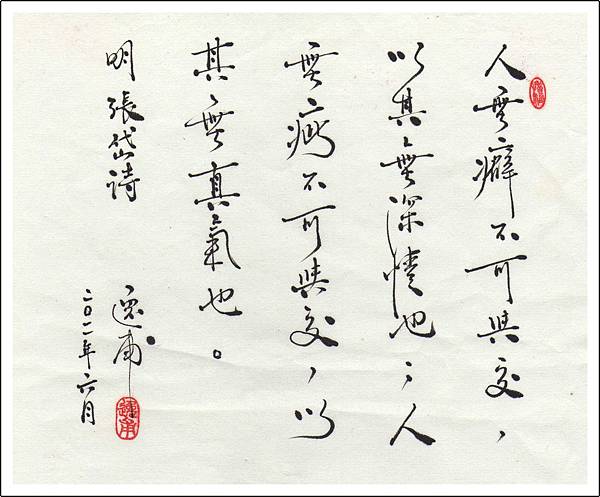 人無癖不可與交，
以其無深情也；人
無疵不可與交，以
其無真氣也。
明張岱詩
甫
二〇一一年六月